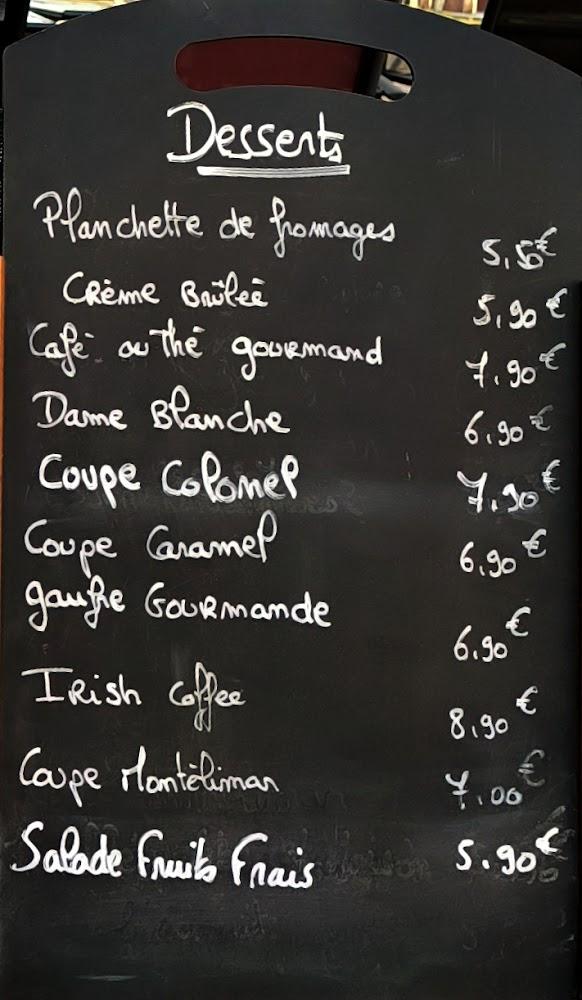 Desserts
Planchette de fromages 5,50€
Crème Brûleé 5,90€
Café ou Thé gourmand 7,90€
Dame Blanche 6,90€
Coupe Colonel 7,90€
Coupe Caramel 6,90€
gaufre Gourmande 6,90€
Irish Coffee 8,90€
Coupe Montélimar 7,00€
Salade Fruits Frais 5,90€